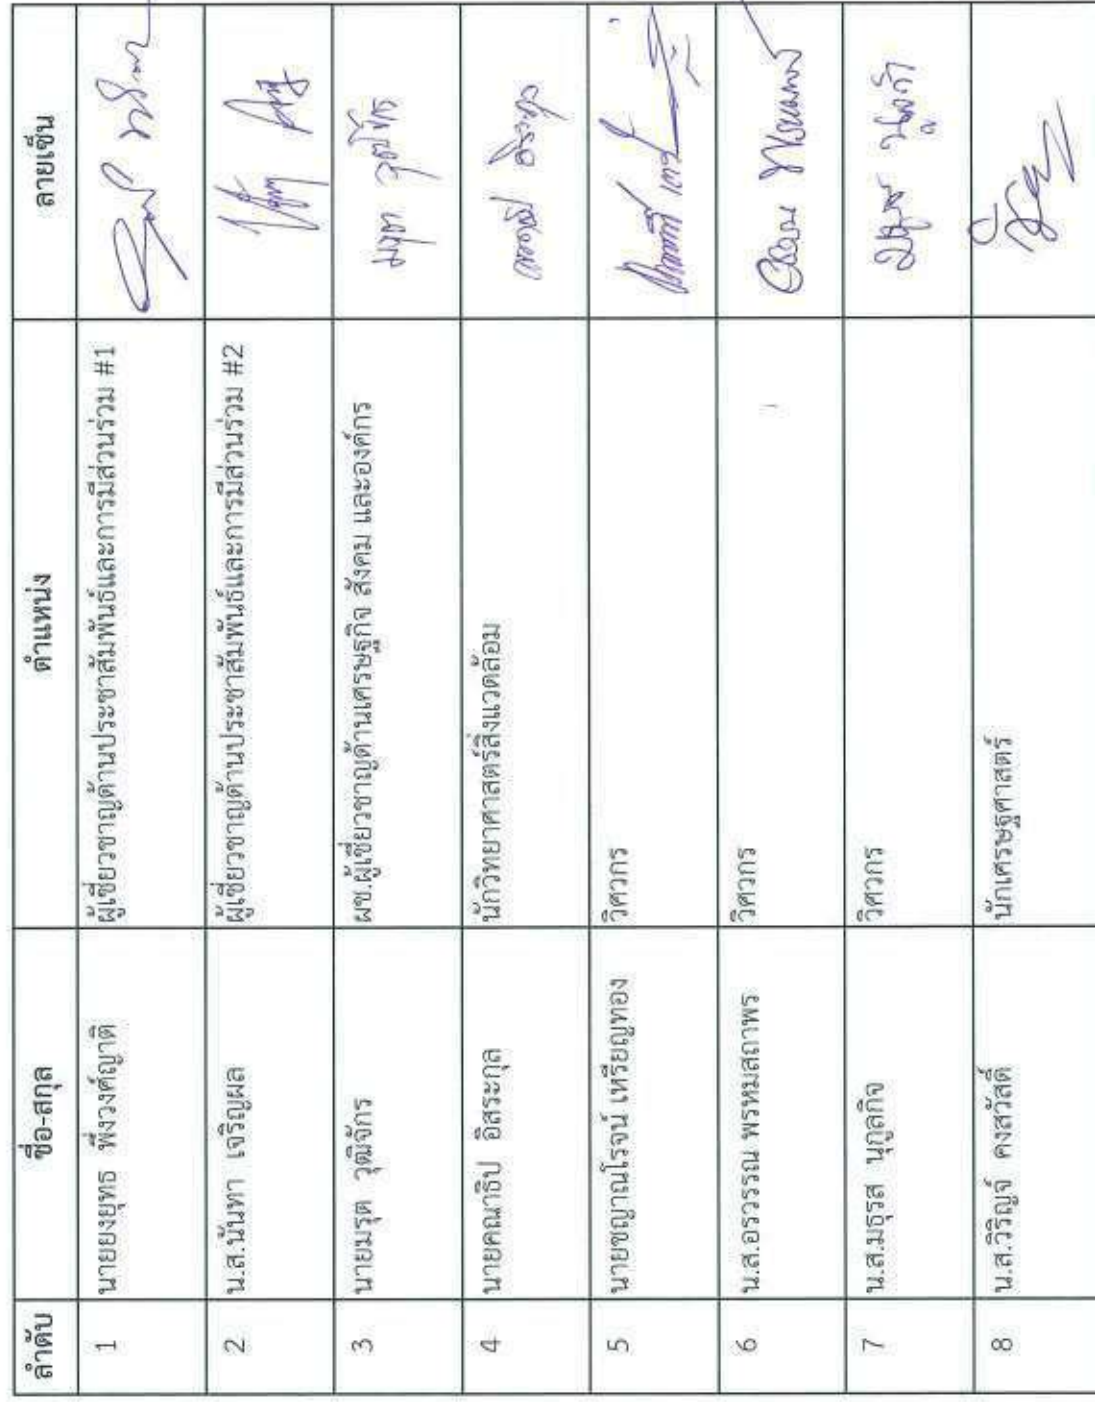 ลำดับ ชื่อ-สกุล ตำแหน่ง ลายเซ็น
1 นายยงยุทธ พึ่งวงศ์ญาติ ผู้เชี่ยวชาญด้านประชาสัมพันธ์และการมีส่วนร่วม #1
2 น.ส.นันทา เจริญผล ผู้เชี่ยวชาญด้านประชาสัมพันธ์และการมีส่วนร่วม #2
3 นายมรุต วุฒิจักร ผช.ผู้เชี่ยวชาญด้านเศรษฐกิจ สังคม และองค์กร
4 นายคณาธิป อิสระกุล นักวิทยาศาสตร์สิ่งแวดล้อม
5 นายชญาณโรจน์ เหรียญทอง วิศวกร
6 น.ส.อรวรรณ พรหมสถาพร วิศวกร
7 น.ส.มธุรส นุกูลกิจ วิศวกร
8 น.ส.วิริญจ์ คงสวัสดิ์ นักเศรษฐศาสตร์